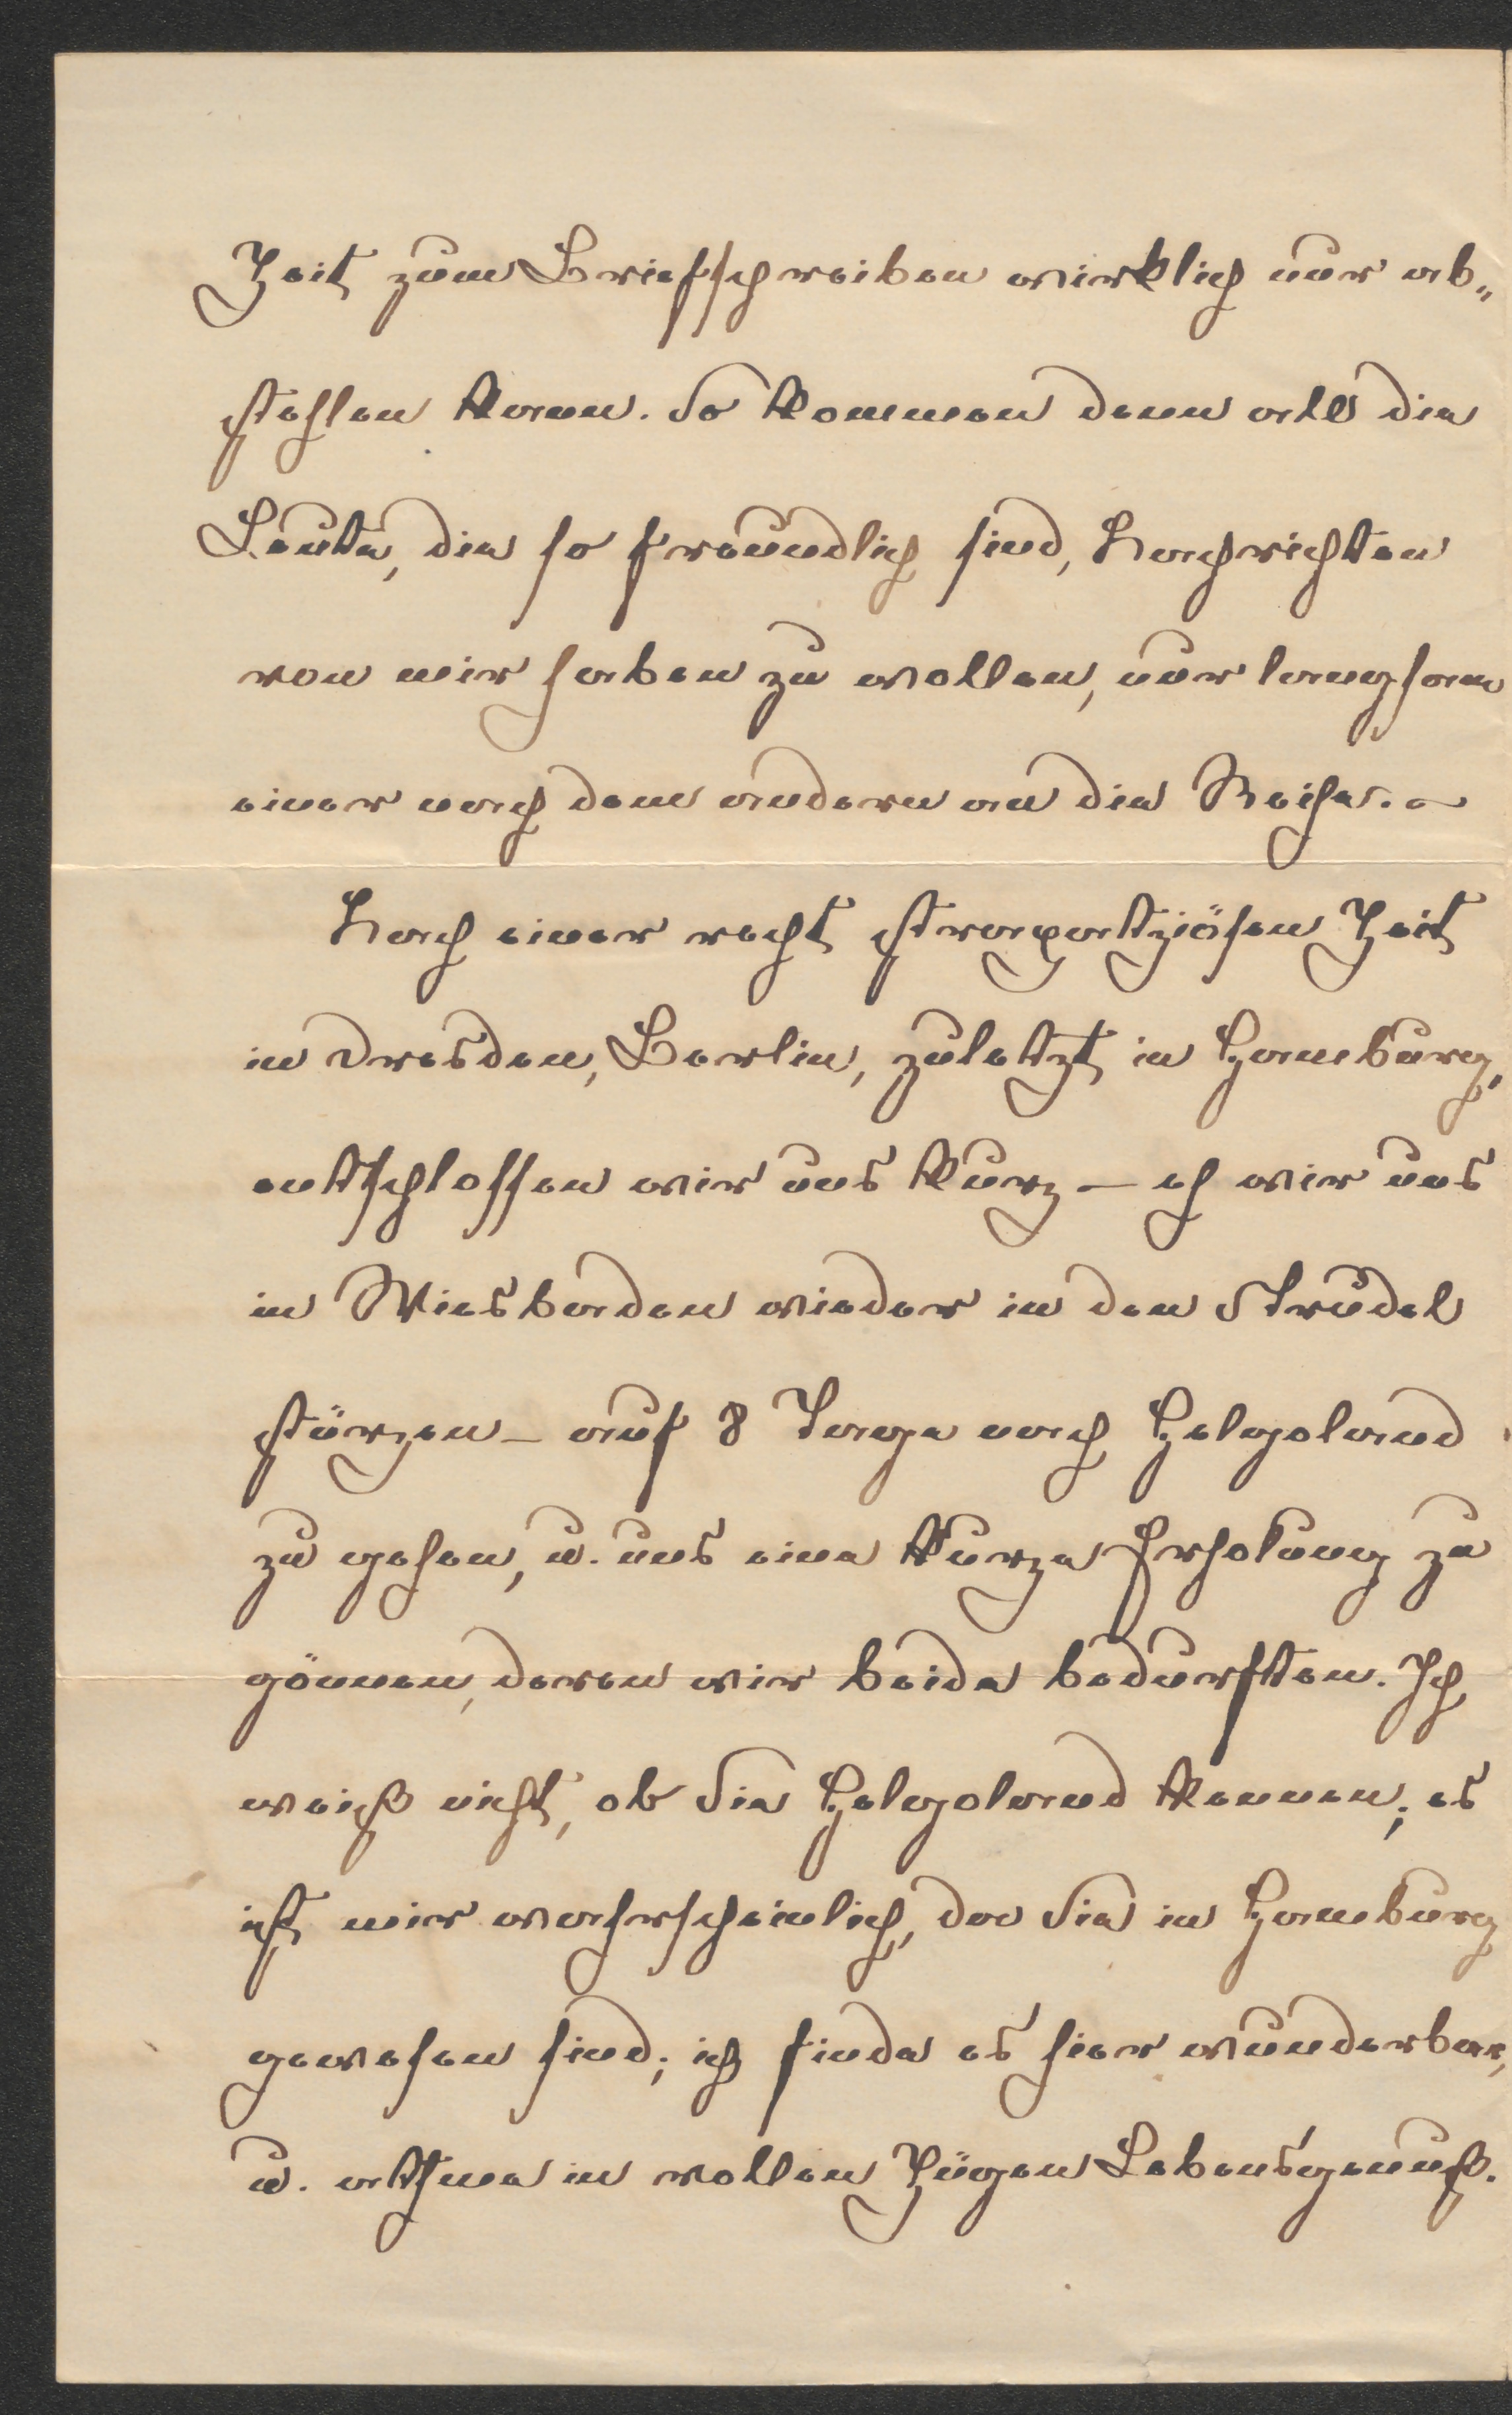 Zeit zum Briefschreiben wirklich nur ab„
stehlen kann. So kommen denn all die
Leute, die so freundlich sind, Nachrichten
von mir haben zu wollen, nur langsam
einer nach dem andern an die Reihe. –
Nach einer recht strapatziösen Zeit
in Dresden, Berlin, zuletzt in Hamburg,
entschlossen wir uns kurz – eh wir uns
in Wiesbaden wieder in den Strudel
stürzen – auf 8 Tage nach Helgoland
zu gehen, u. uns eine kurze Erholung zu
gönnen, deren wir beide bedurften. Ich
weiß nicht, ob Sie Helgoland kennen; es
ist mir wahrscheinlich, da Sie in Hamburg
gewesen sind; ich finde es hier wunderbar,
u. athme in vollen Zügen Lebensgenuß.